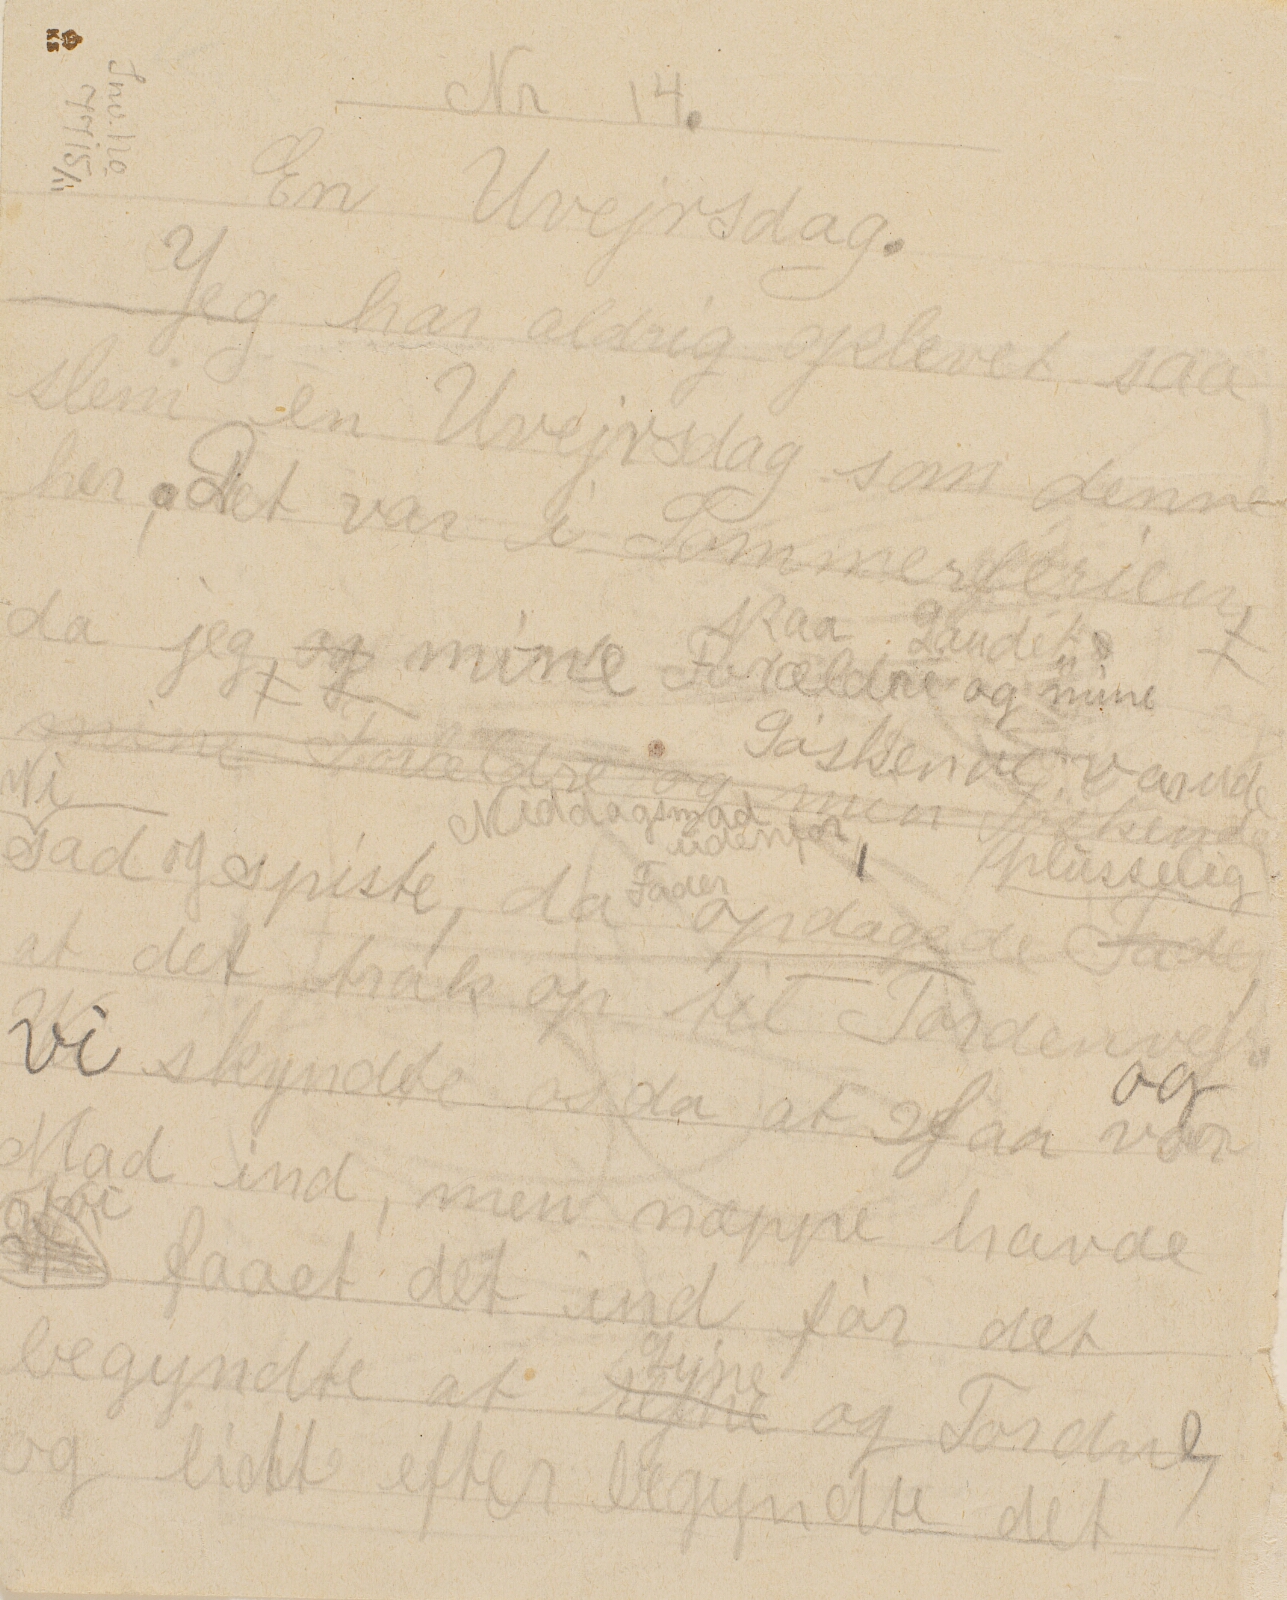 KS
Inv. No.
77/15/11
Nr 14.
En Uvejrsdag.
Jeg har aldrig oplevet saa
slem en Uvejrsdag som denne
her, Det var i Sommerferien,
paa Landet.
da jeg og mine Forældre og mine
Søskende varude
mine Forældre og min Søskende
Vi
Middagsmad
udenfor,
plusselig
sad og spiste, da Fader opdagede Fader
at det trak op til Tordenvejr.
og
Vi skyndte os da at faa vor
Mad ind, men næppe havde
vi faaet det ind før det
Lyne
begyndte at regne og Tordne,
og lidt efter begyndte det